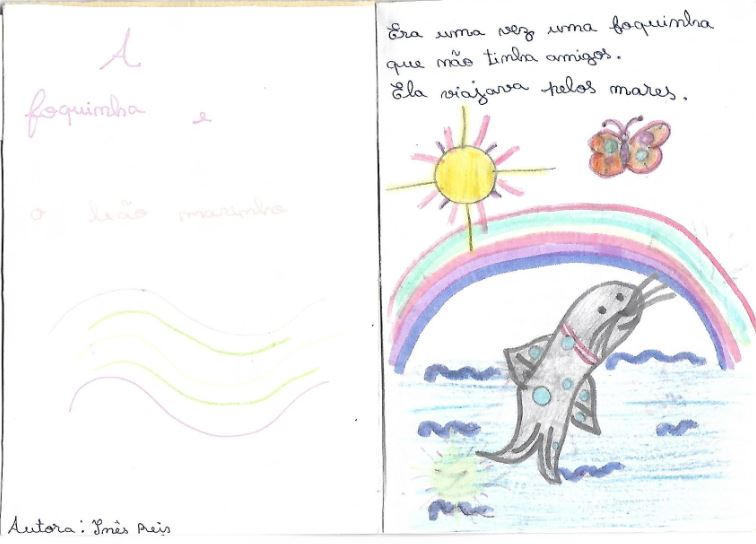 A
foquinha e
o leão marinho
Autora: Inês Reis
Era uma vez uma foquinha
que não tinha amigos.
Ela viajava pelos mares.